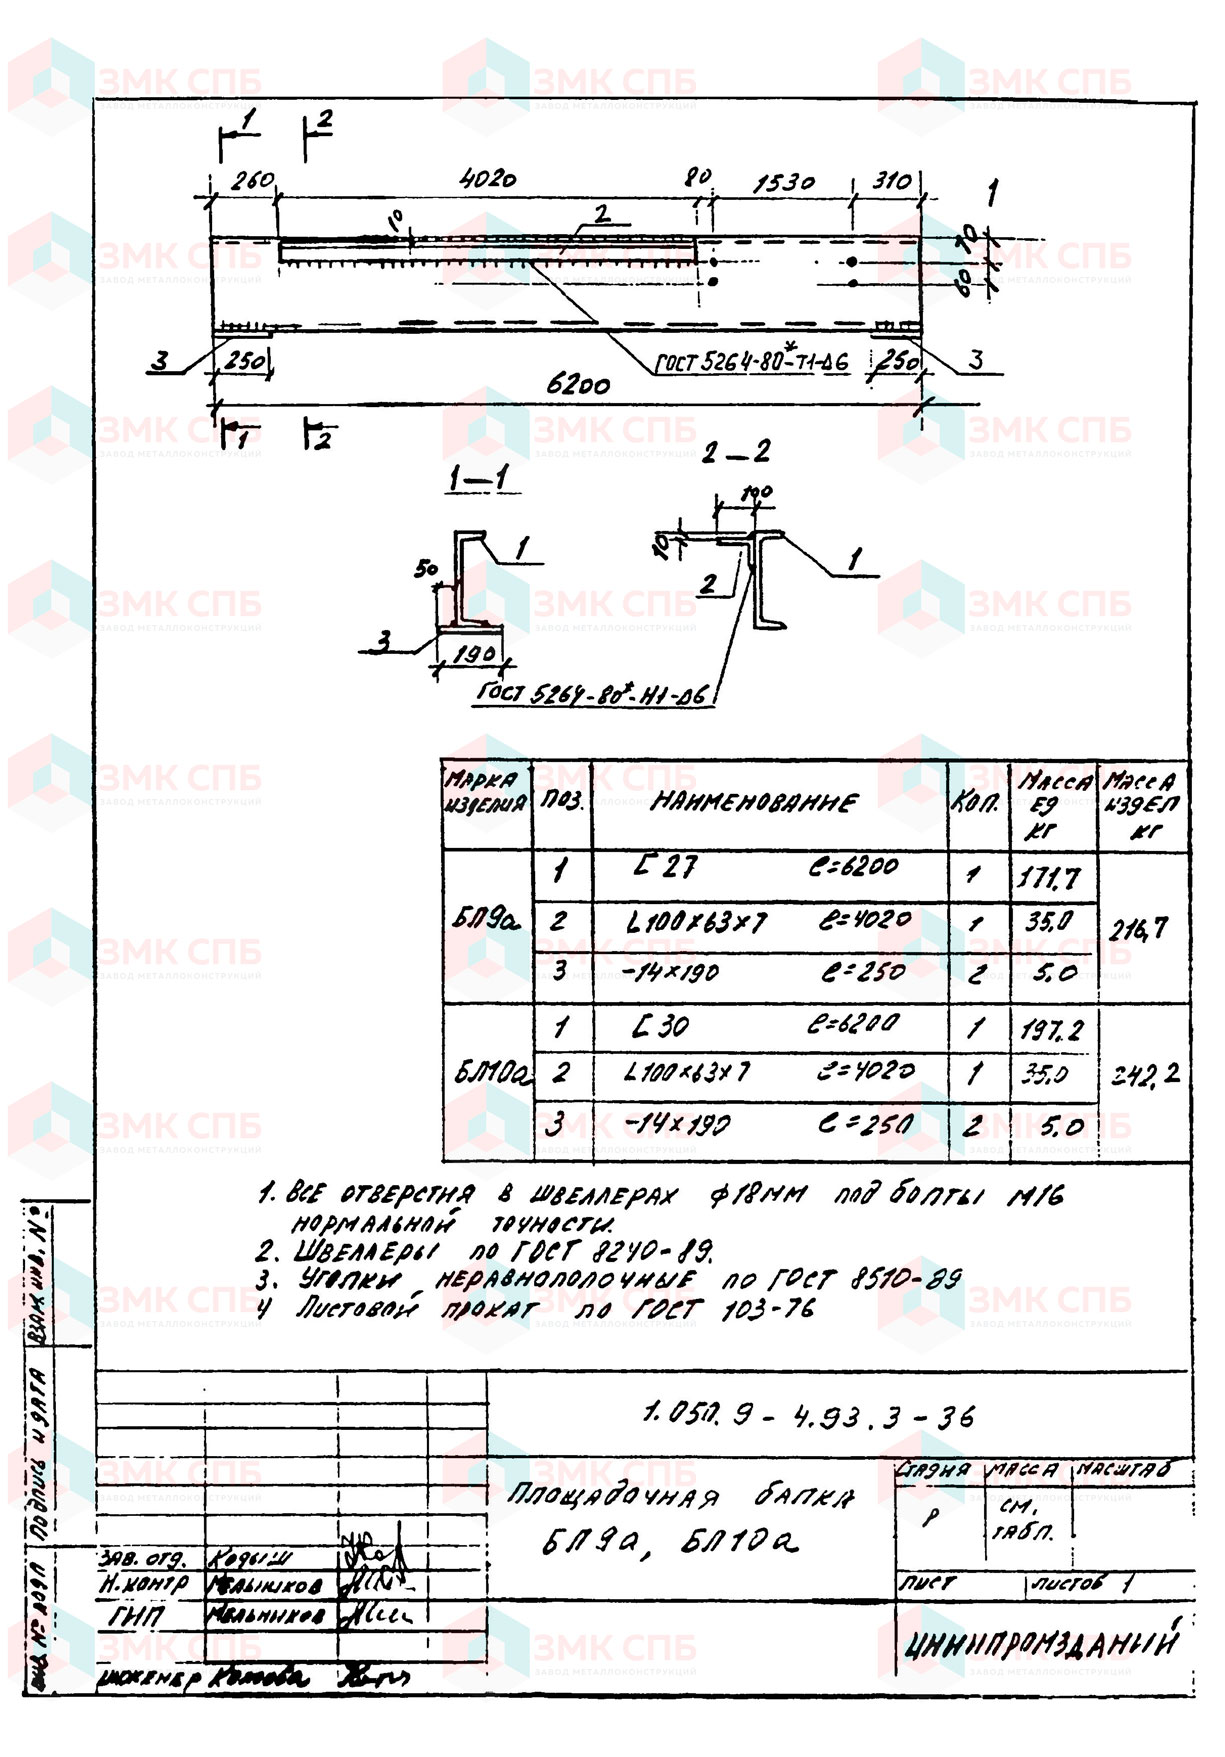 ЗМК СПБ
ЗАВОД МЕТАЛЛОКОНСТРУКЦИЙ
1 2
260 4020 80 1530 310 1
10 2 70
60
3 250 ГОСТ 5264-80*-Т1-Δ6 250 3
6200
1 2
1—1
2—2
1
50
3
190
100
10
1
2
ГОСТ 5264-80*-Н1-Δ6
МАРКА ИЗДЕЛИЯ ПОЗ. НАИМЕНОВАНИЕ КОЛ. МАССА ЕД КГ МАССА ИЗДЕЛ КГ
БП9а 1 [ 27 ℓ=6200 1 171.7 216,7
2 L100×63×7 ℓ=4020 1 35.0
3 -14×190 ℓ=250 2 5.0
БП10а 1 [ 30 ℓ=6200 1 197.2 242,2
2 L100×63×7 ℓ=4020 1 35.0
3 -14×190 ℓ=250 2 5.0
1. ВСЕ ОТВЕРСТИЯ В ШВЕЛЛЕРАХ ф18мм под болты М16
НОРМАЛЬНОЙ ТОЧНОСТИ.
2. ШВЕЛЛЕРЫ по ГОСТ 8240-89.
3. УГОЛКИ НЕРАВНОПОЛОЧНЫЕ по ГОСТ 8510-89
4 Листовой прокат по ГОСТ 103-76
ВЗАМ. ИНВ. №
ПОДПИСЬ И ДАТА
ИНВ. № ПОДЛ
1.050.9-4.93.3-36
ПЛОЩАДОЧНАЯ БАЛКА
БП9а, БП10а
СТАДИЯ МАССА МАСШТАБ
Р СМ. ТАБЛ.
ЛИСТ ЛИСТОВ 1
ЦНИИПРОМЗДАНИЙ
ЗАВ. ОТД. КОДЫШ
Н.КОНТР МЕЛЬНИКОВ
ГИП МЕЛЬНИКОВ
ИНЖЕНЕР